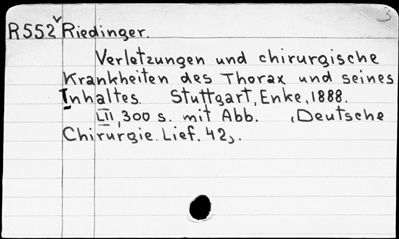 R552 Riedinger.
Verletzungen und chirurgische
Krankheiten des Thorax und seines
Inhaltes. Stuttgart, Enke, 1888.
LII, 300 s. mit Abb. , Deutsche
Chirurgie. Lief. 42,.